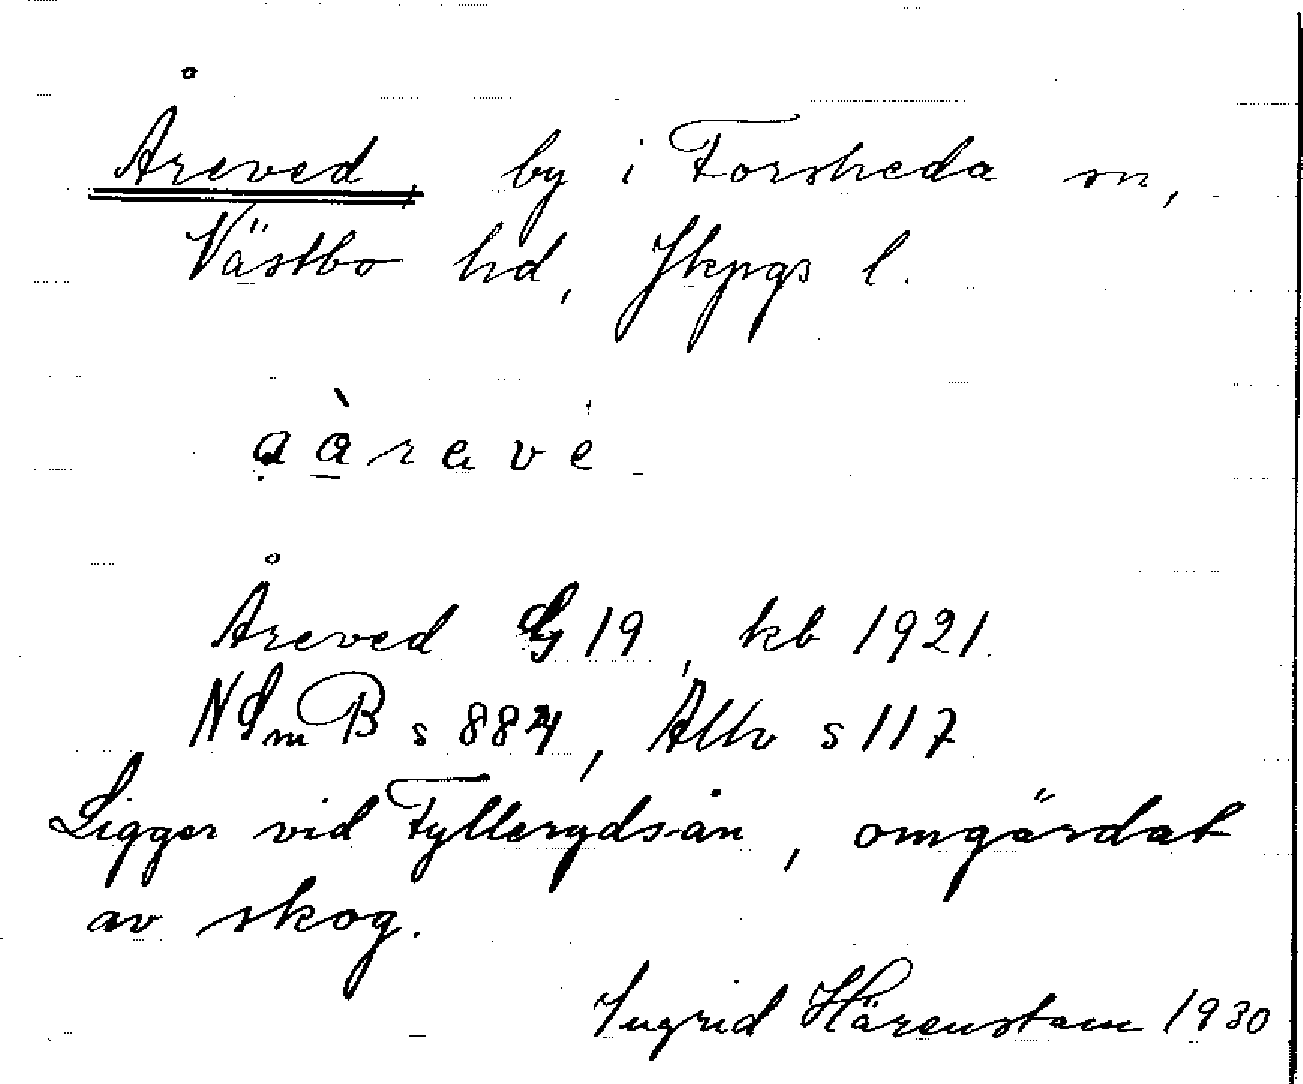 Åreved by i Forsheda sn,
Västbo hd, Jkpgs l.
aàrave
Åreved G 19, kb 1921.
NSmB s 884, Allv s 117
Ligger vid Fyllerydsån, omgärdat
av skog.
Ingrid Härenstam 1930